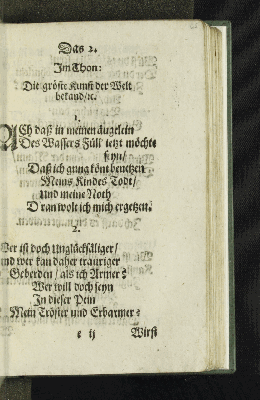 Das 2.
Im Thon:
Die gröste Kunst der Welt
bekand/ꝛc.
1.
ACh daß in meinen äugelein
Des Wassers Füll jetzt möchte
seyn/
Daß ich gnug könt benetzen
Meins Kindes Todt/
Und meine Noth
Dran wolt ich mich ergetzen.
2.
Wer ist doch Unglückseliger/
Und wer kan daher trauriger
Geberden/ als ich Armer?
Wer will doch seyn
In dieser Pein
Mein Tröster und Erbarmer?
e ij Wirst